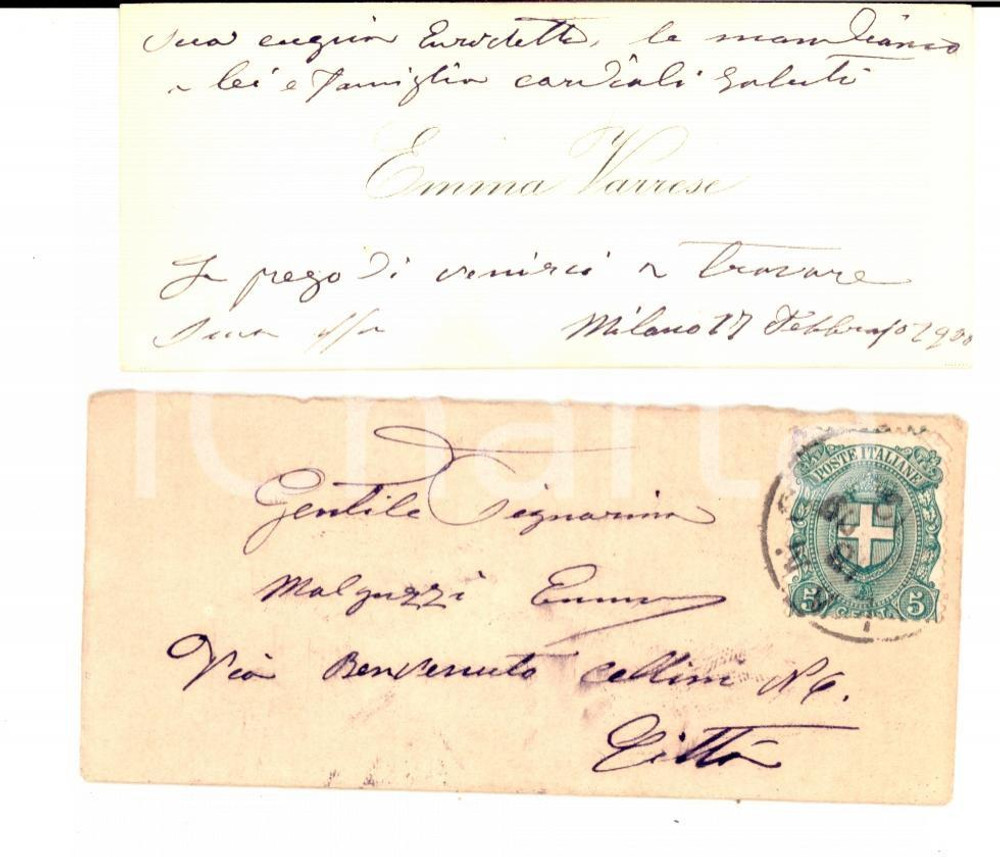 Sua cugina Enrichetta, le mandiamo
a lei e Famiglia cordiali Saluti
Emma Varrese
La prego di venirci a trovare
Sua
Milano 17 Febbrajo 1900
Gentile Signorina
Malguzzi Emma
Via Benvenuto Cellini N 6.
Città
POSTE ITALIANE
5 5